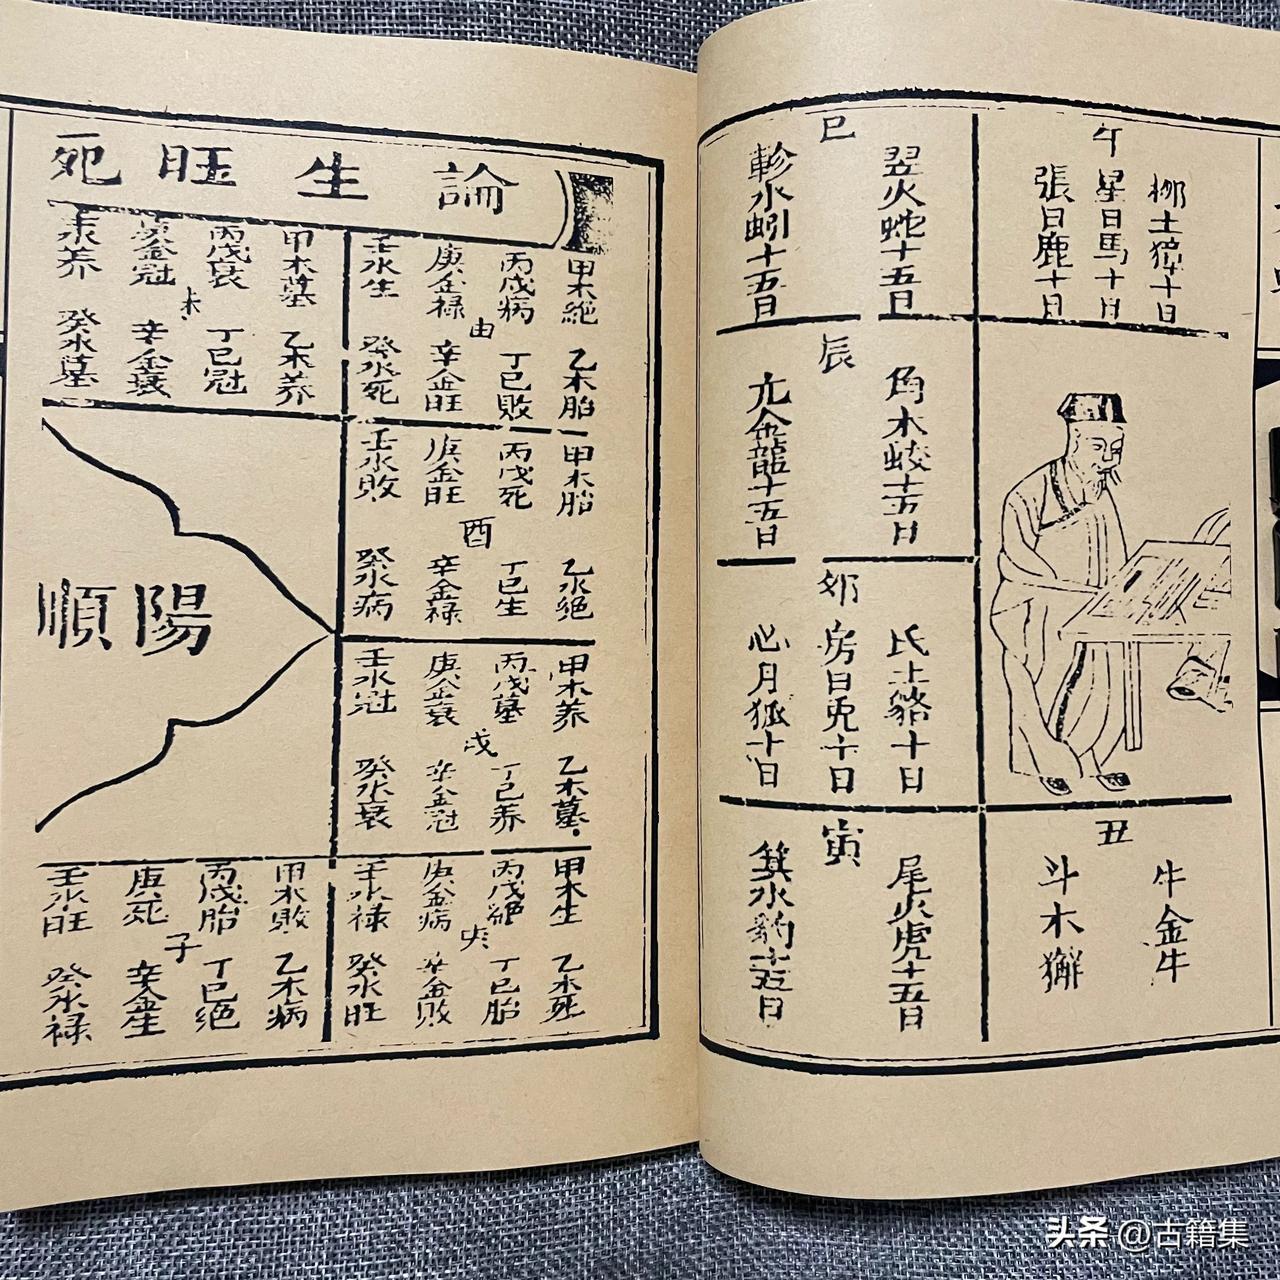 午
柳土獐十日
星日馬十日
張日鹿十日
巳
翌火蛇十五日
軫水蚓十五日
辰
角木蛟十五日
亢金龍十五日
卯
氐土貉十日
房日兎十日
心月狐十日
寅
尾火虎十五日
箕水豹十五日
丑
牛金牛
斗木獬
論生旺死
甲木絕
乙木胎
丙戊病
丁巳敗
庚金禄
辛金旺
壬水生
癸水死
甲木墓
乙木养
丙戊衰
丁巳冠
未
庚金冠
辛金衰
壬水养
癸水墓
甲木胎
乙水絕
丙戊死
丁巳生
酉
庚金旺
辛金禄
壬水敗
癸水病
甲木养
乙木墓
丙戊墓
丁巳养
戌
庚金衰
辛金冠
壬水冠
癸水衰
陽順
甲木生
乙木死
丙戊絕
丁巳胎
庚金病
辛金敗
壬水禄
癸水旺
甲木敗
乙木病
丙戊胎
丁巳绝
子
庚死
辛金生
壬水旺
癸水禄
头条 @古籍集